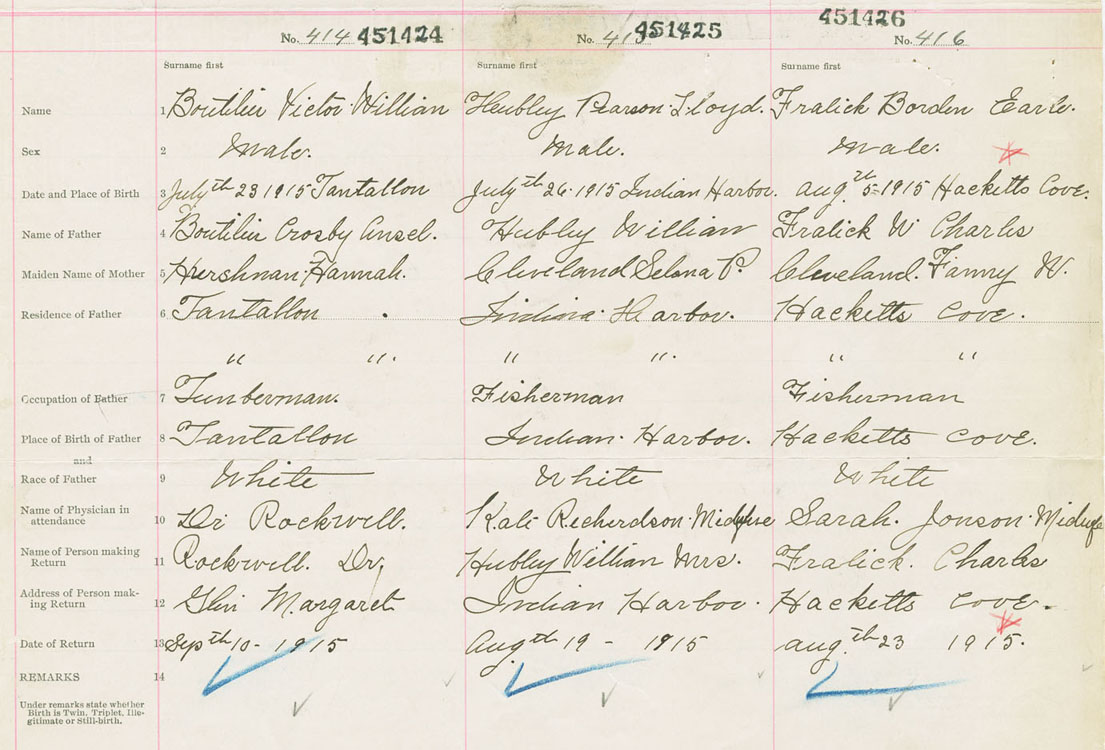 451426
No. 414 451424 No. 415 451425 No. 416
Surname first Surname first Surname first
Name 1 Boutilier Victor William Heubley Pearson Lloyd. Fralick Borden Earle.
Sex 2 Male. Male. Male.
Date and Place of Birth 3 July th 23 1915 Tantallon July th 26 1915 Indian Harbor. Aug 5 1915 Hacketts Cove.
Name of Father 4 Boutilier Crosby Ansel. Hubley William Fralick W Charles
Maiden Name of Mother 5 Hershman Hannah. Cleveland Selena P. Cleveland. Fanny W.
Residence of Father 6 Tantallon . Indian Harbor. Hacketts Cove.
" ". " ". " "
Occupation of Father 7 Lumberman. Fisherman Fisherman
Place of Birth of Father 8 Tantallon Indian Harbor. Hacketts Cove.
and
Race of Father 9 White White White
Name of Physician in
attendance 10 Dr Rockwell. Kate Richerdson Midwife Sarah. Jonson Midwife
Name of Person making
Return 11 Rockwell. Dr, Hubley William Mrs. Fralick. Charles
Address of Person mak-
ing Return 12 Glen Margaret Indian Harbor. Hacketts Cove.
Date of Return 13 Sept th 10 - 1915 Aug th 19 - 1915 Aug. th 23 1915.
REMARKS 14
Under remarks state whether
Birth is Twin, Triplet, Ille-
gitimate or Still-birth.